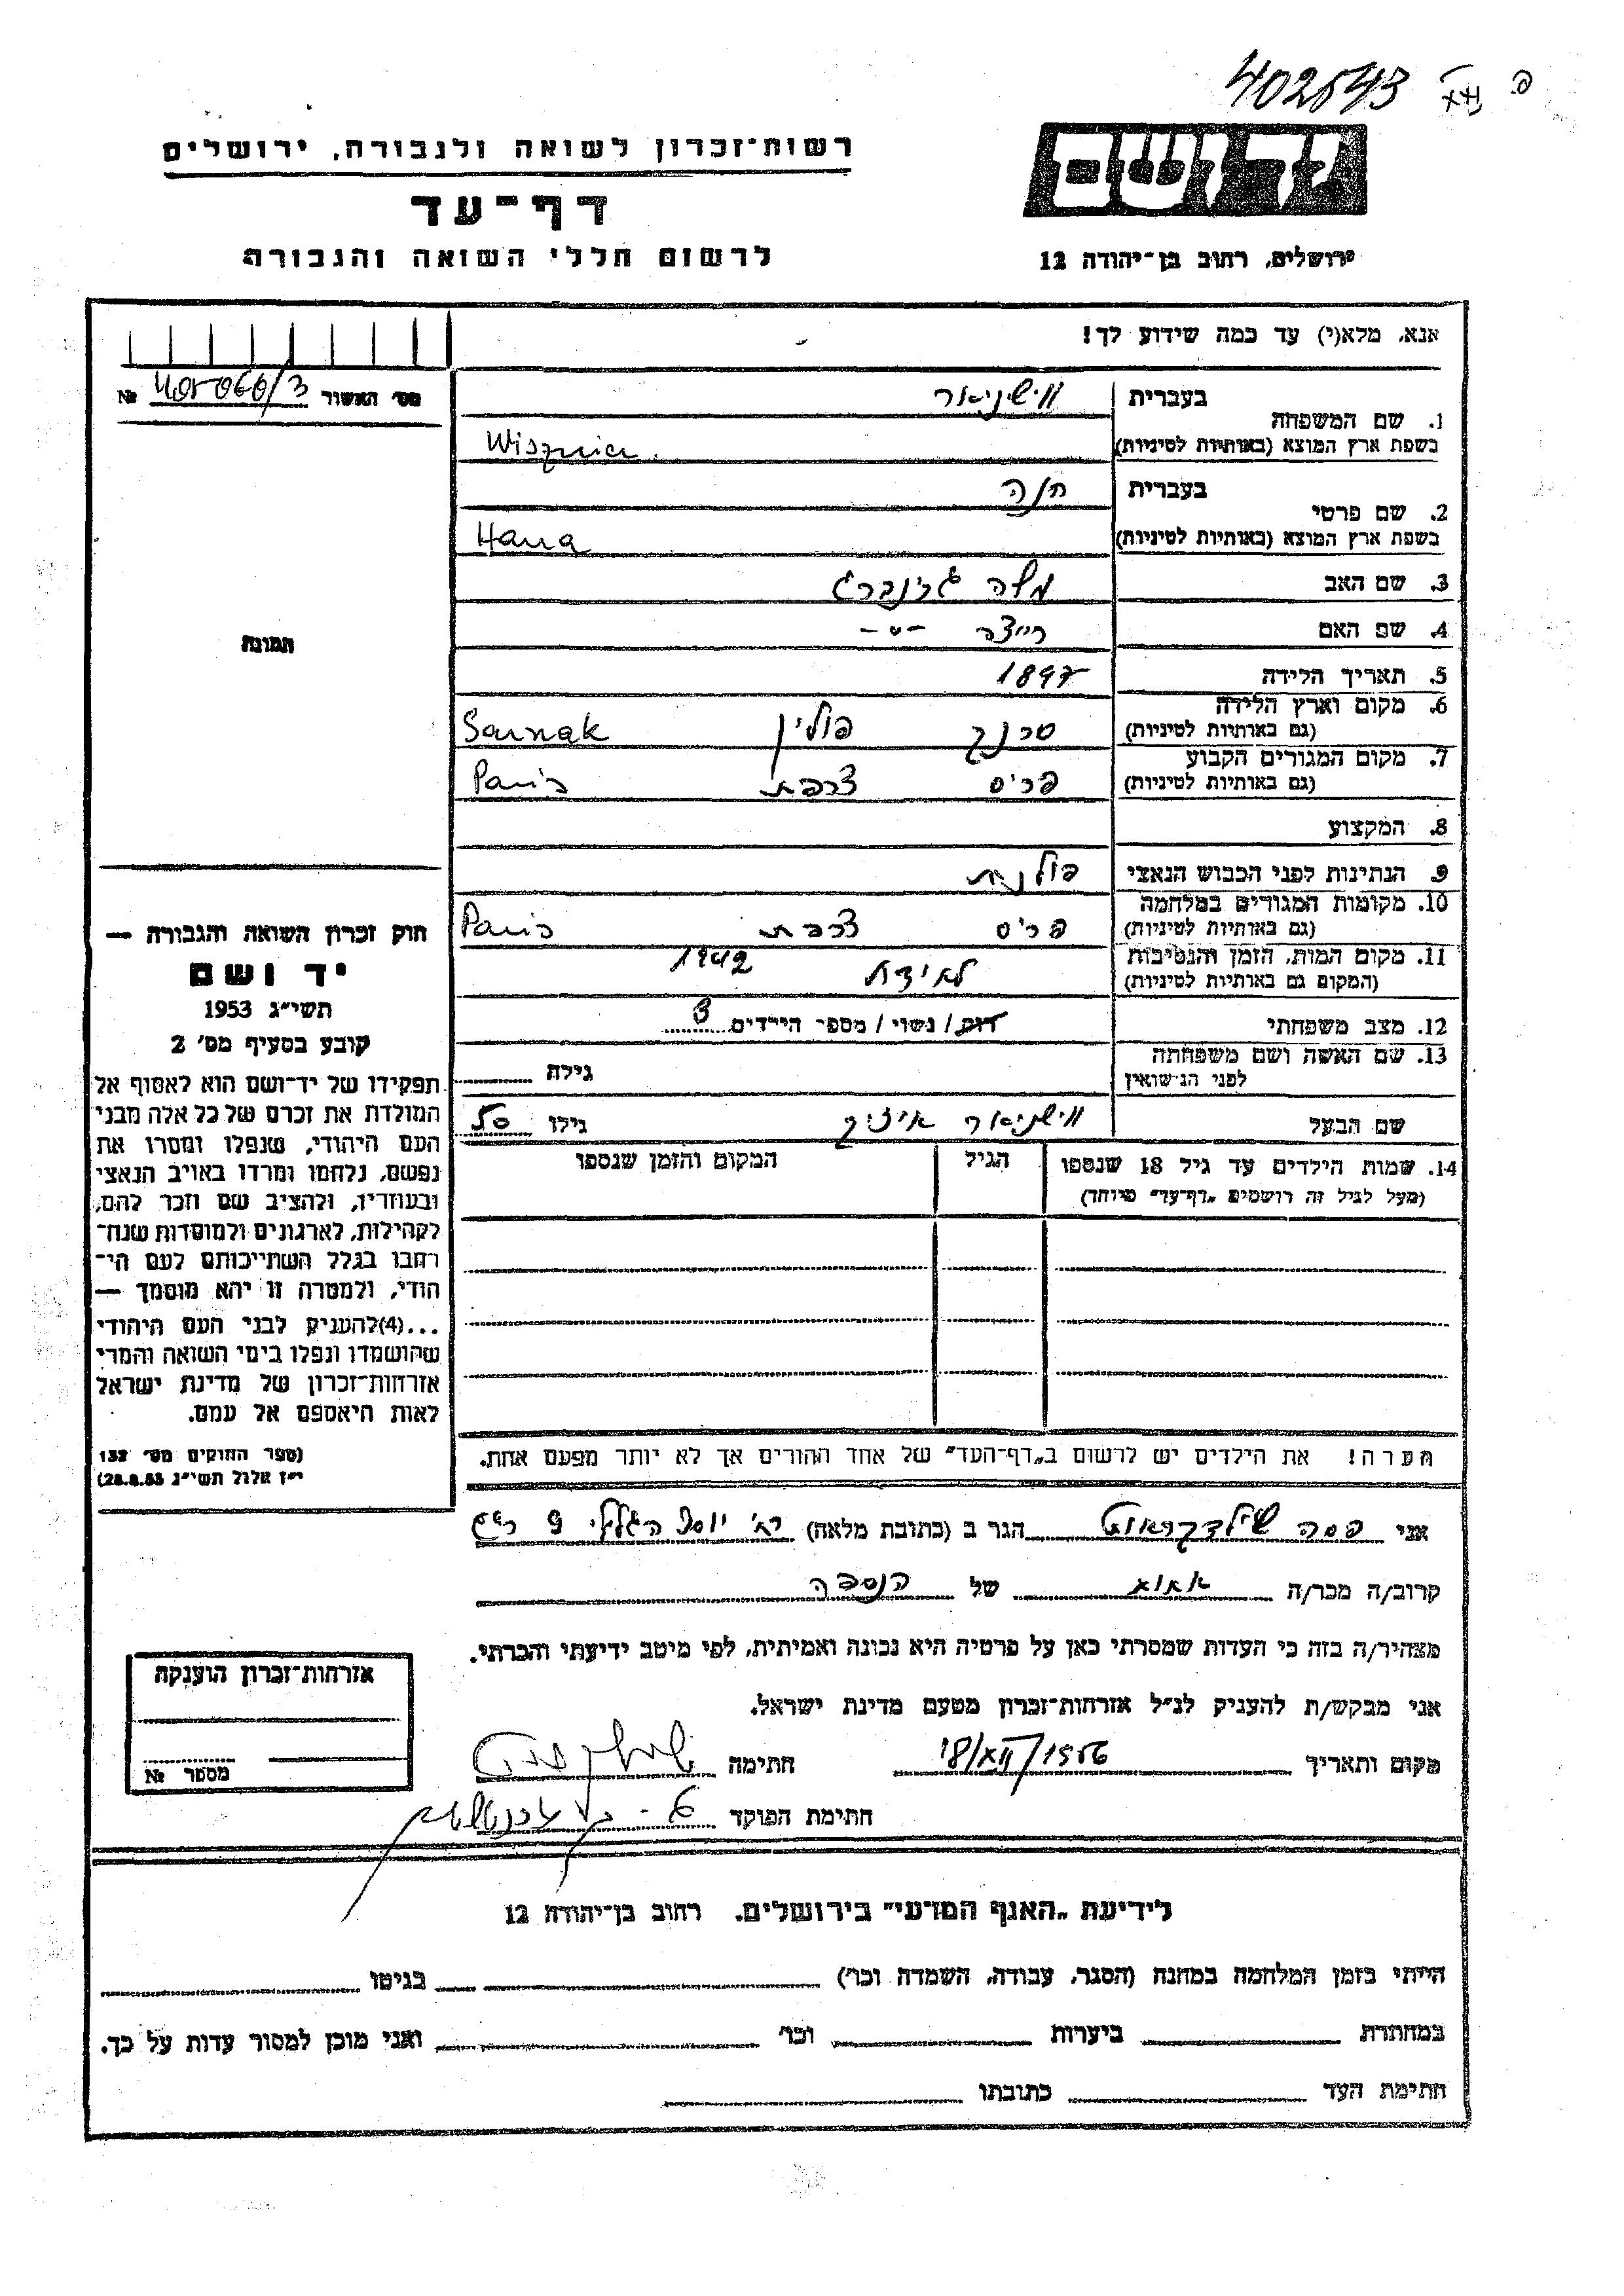 402543
רשות-זכרון לשואה ולגבורה, ירושלים
דף-עד
לרשום חללי השואה והגבורה
ירושלים, רחוב בן-יהודה 12
אנא, מלא(י) עד כמה שידוע לך!
מס' האשור №
בעברית
1. שם המשפחה
בשפת ארץ המוצא (באותיות לטיניות)
Wisznia
בעברית חנה
2. שם פרטי
בשפת ארץ המוצא (באותיות לטיניות) Hana
3. שם האב משה גרינברג
4. שם האם רייצה -"-
תמונה
5. תאריך הלידה 1897
6. מקום וארץ הלידה
(גם באותיות לטיניות) סרנק פולין Sarnak
7. מקום המגורים הקבוע
(גם באותיות לטיניות) פריס צרפת Paris
8. המקצוע
9. הנתינות לפני הכבוש הנאצי פולנית
10. מקומות המגורים במלחמה
(גם באותיות לטיניות) פריס צרפת Paris
11. מקום המות, הזמן והנסיבות
(המקום גם באותיות לטיניות) לא ידוע 1942
12. מצב משפחתי רווק / נשוי / מספר הילדים 3
13. שם האשה ושם משפחתה
לפני הנישואין גילה
שם הבעל איציק גילו 50
14. שמות הילדים עד גיל 18 שנספו הגיל המקום והזמן שנספו
(מעל לגיל זה רושמים „דף-עד" מיוחד)
חוק זכרון השואה והגבורה —
יד ושם
תשי"ג 1953
קובע בסעיף מס' 2
תפקידו של יד-ושם הוא לאסוף אל
המולדת את זכרם של כל אלה מבני
העם היהודי, שנפלו ומסרו את
נפשם, נלחמו ומרדו באויב הנאצי
ובעוזריו, ולהציב שם וזכר להם,
לקהילות, לארגונים ולמוסדות שנח-
רחבו בגלל השתייכותם לעם הי-
הודי, ולמטרה זו יהא מוסמך —
...(4)להעניק לבני העם היהודי
שהושמדו ונפלו בימי השואה והמרי
אזרחות-זכרון של מדינת ישראל
לאות היאספם אל עמם.
(ספר החוקים מס' 132
י"ז אלול תשי"ג 28.8.53)
הערה! את הילדים יש לרשום ב„דף-העד" של אחד ההורים אך לא יותר מפעם אחת.
אני פסה הגר ב (כתובת מלאה) רח' יוסף הגלילי 9
קרוב/ה מכר/ה של הנספה
מצהיר/ה בזה כי העדות שמסרתי כאן על פרטיה היא נכונה ואמיתית, לפי מיטב ידיעתי והכרתי.
אני מבקש/ת להעניק לנ"ל אזרחות-זכרון מטעם מדינת ישראל.
מקום ותאריך 18/XII/1956 חתימה
חתימת הפוקד
אזרחות-זכרון הוענקה
מספר №
לידיעת „האגף המדעי" בירושלים, רחוב בן-יהודה 12
הייתי בזמן המלחמה במחנה (הסגר, עבודה, השמדה וכו') בגיטו
במחתרת ביערות וכו' ואני מוכן למסור עדות על כך.
חתימת העד כתובתו